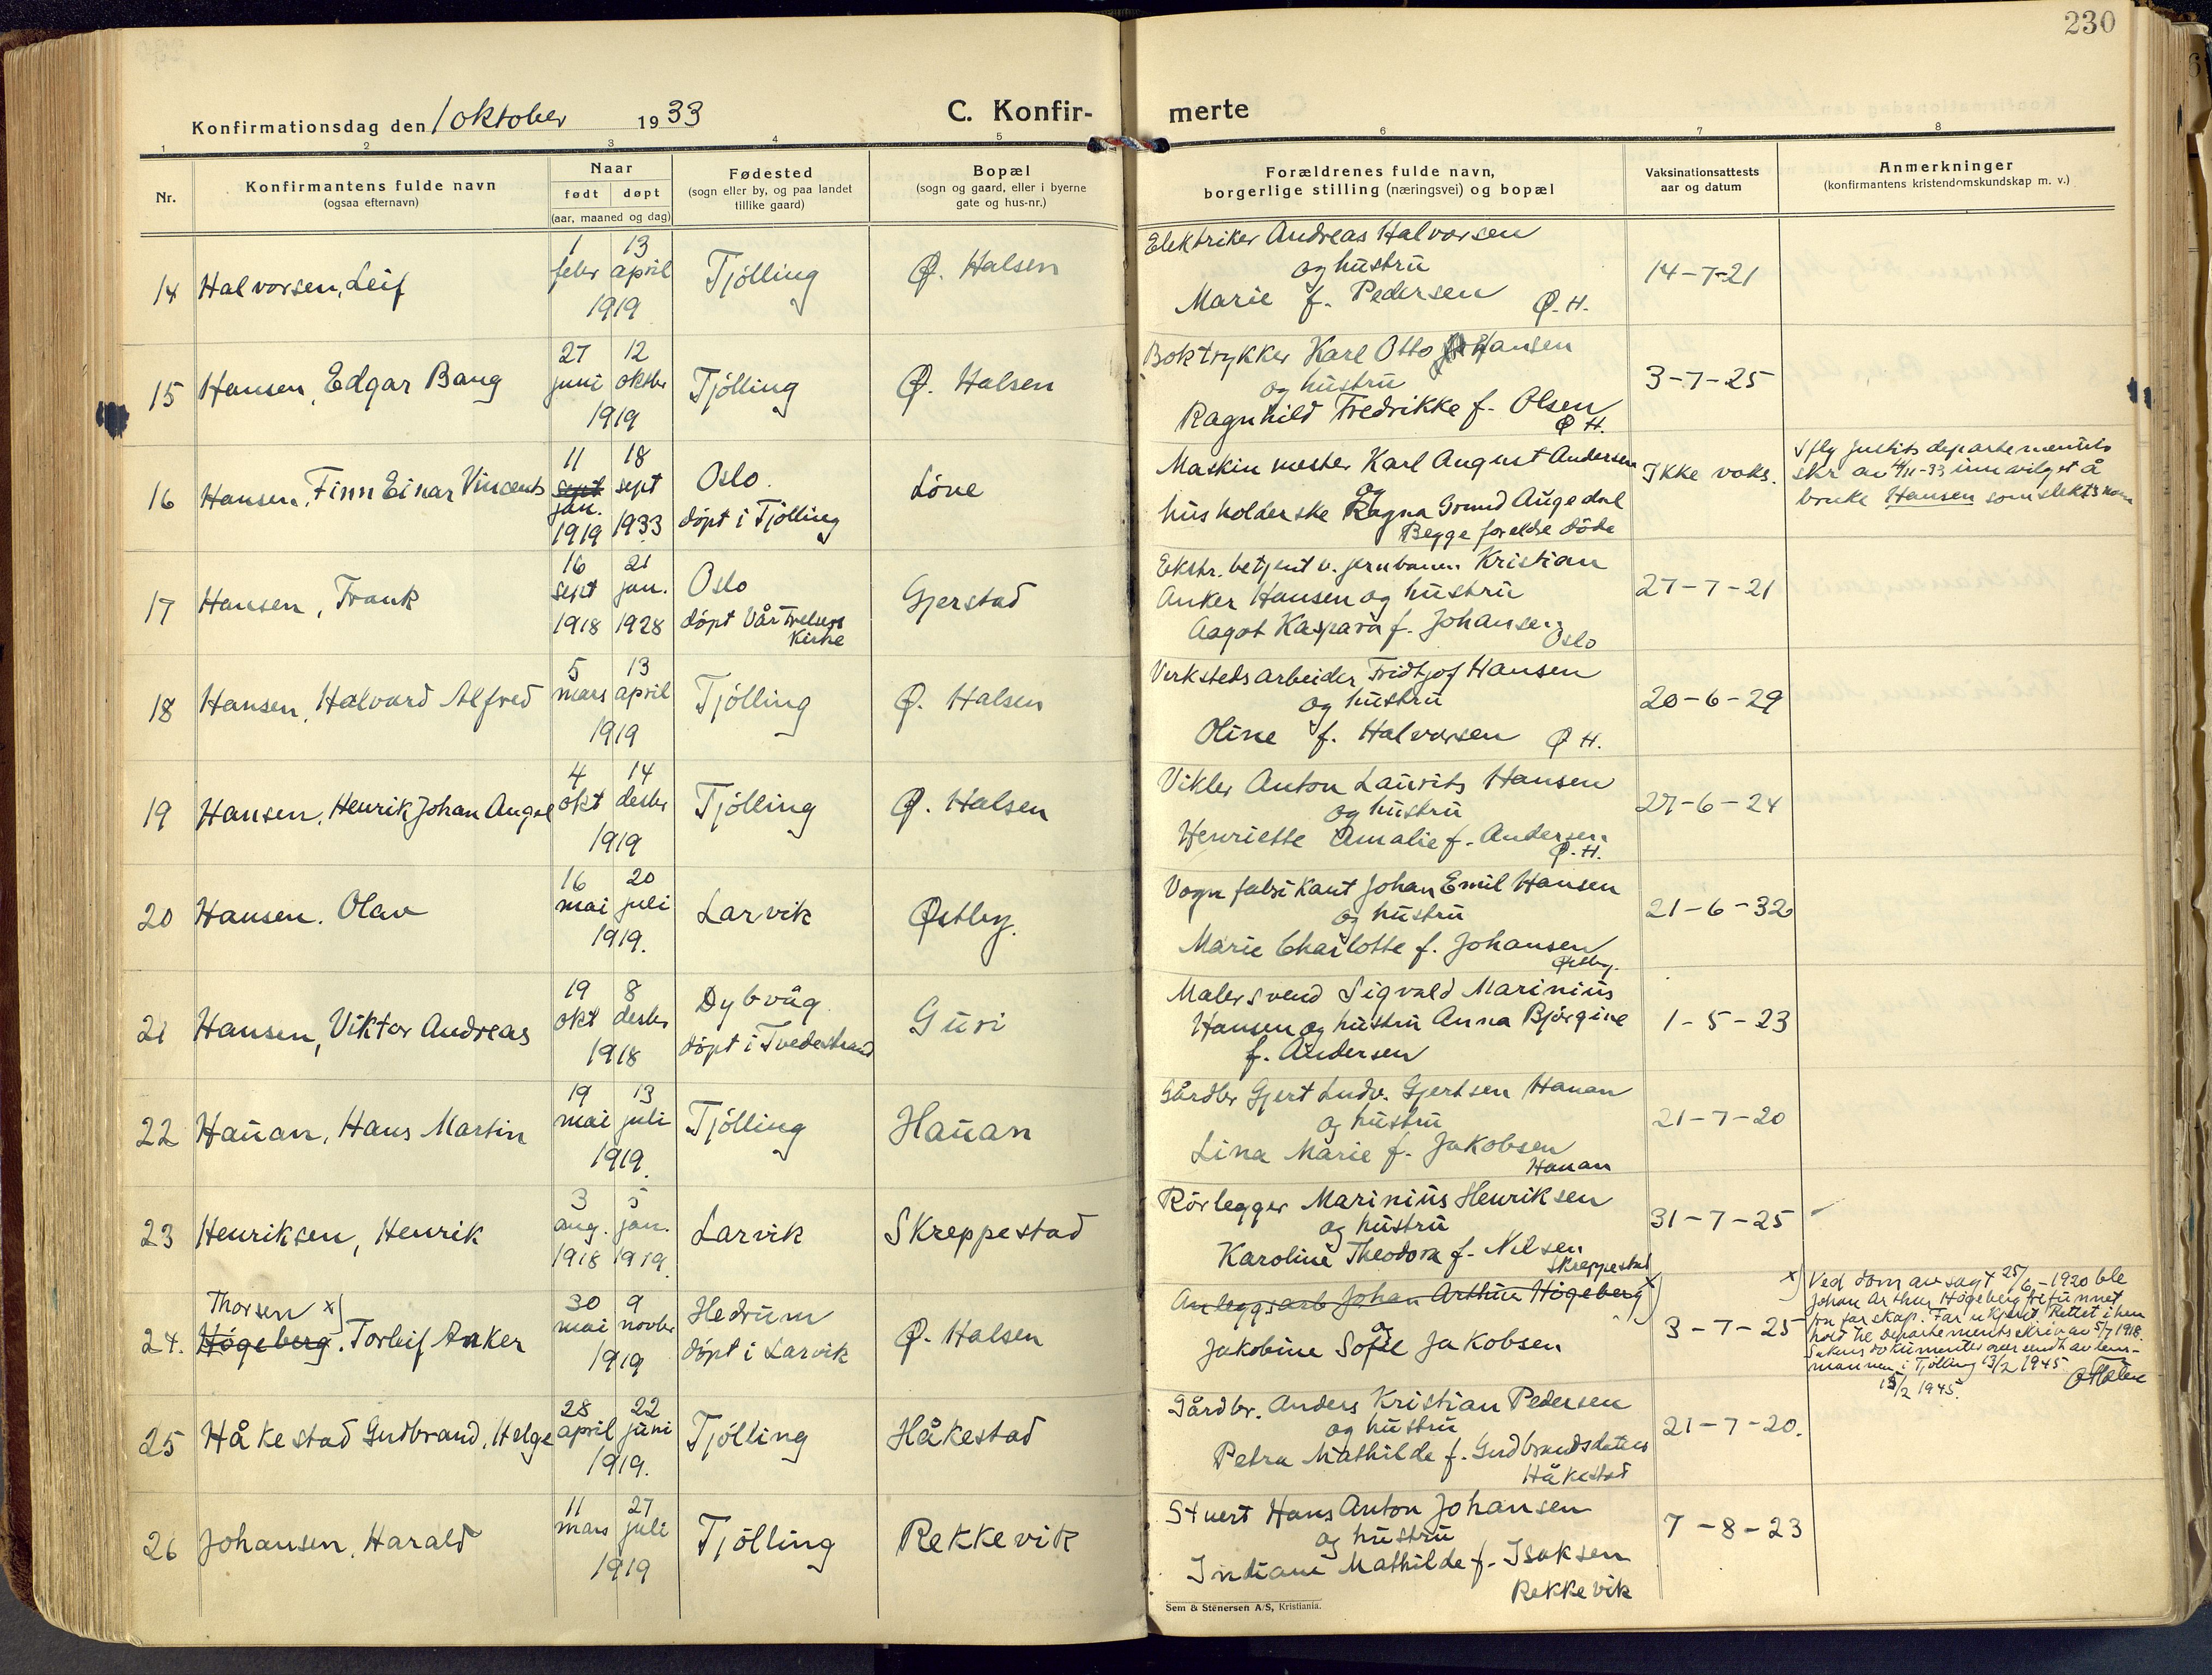 230
Konfirmationsdag den 1 oktober 1933
C. Konfir-
merte
1 2 3 4 5 6 7 8
Nr.
Konfirmantens fulde navn
(ogsaa efternavn)
Naar
født døpt
(aar, maaned og dag)
Fødested
(sogn eller by, og paa landet
tillike gaard)
Bopæl
(sogn og gaard, eller i byerne
gate og hus-nr.)
Forældrenes fulde navn,
borgerlige stilling (næringsvei) og bopæl
Vaksinationsattests
aar og datum
Anmerkninger
(konfirmantens kristendomskundskap m. v.)
14 Halvorsen, Leif
1 13
febr april
1919
Tjölling
Ø. Halsen
Elektriker Andreas Halvorsen
og hustru
Marie f. Pedersen Ø.H.
14-7-21
15 Hansen, Edgar Bang
27 12
juni oktbr
1919
Tjölling
Ø. Halsen
Boktrykker Karl Otto Hansen
og hustru
Ragnhild Fredrikke f. Olsen
Ø H.
3-7-25
16 Hansen, Finn Einar Vincents
11 18
sept sept
jan.
1919 1933
Oslo.
döpt i Tjölling
Löve
Maskinmester Karl August Andersen
og
husholderske Ragna Grund Augedal
Begge foreldre döde
Ikke vaks.
Iflg Justitsdepartementets
skr av 4/11-33 innvilget å
bruke Hansen som slektsnavn
17 Hansen, Frank
16 21
sept jan.
1918 1928
Oslo
döpt Vår Frelsers
Kirke
Gjerstad
Ekstr. betjent v. jernbanen Kristian
Anker Hansen og hustru
Aagot Kaspara f. Johansen
Oslo
27-7-21
18 Hansen, Halvard Alfred
5 13
mars april
1919
Tjölling
Ø. Halsen
Verkstedsarbeider Fridtjof Hansen
og hustru
Oline f. Halvorsen Ø H.
20-6-29
19 Hansen, Henrik Johan Angel
4 14
okt desbr
1919
Tjölling
Ø. Halsen
Vikler Anton Laurits Hansen
og hustru
Henriette Amalie f. Andersen
Ø.H.
27-6-24
20 Hansen. Olav
16 20
mai juli
1919.
Larvik
Østby.
Vognfabrikant Johan Emil Hansen
og hustru
Marie Charlotte f. Johansen
Østby.
21-6-32
21 Hansen, Viktor Andreas
19 8
okt desbr
1918
Dybvåg
döpt i Tvedestrand
Guri
Malersvend Sigvald Marinius
Hansen og hustru Anna Bjørgine
f. Andersen
1-5-23
22 Hauan, Hans Martin
19 13
mai juli
1919.
Tjölling
Hauan
Gårdbr Gjert Ludv. Gjertsen Hauan
og hustru
Lina Marie f. Jakobsen
Hauan
21-7-20
23 Henriksen, Henrik
3 5
aug. jan.
1918 1919.
Larvik
Skreppestad
Rörlegger Marinius Henriksen
og hustru
Karoline Theodora f. Nilsen
Skreppestad
31-7-25
Thorsen x)
24. Högeberg. Torleif Anker
30 9
mai novbr
1919
Hedrum
döpt i Larvik
Ø. Halsen
Anleggsarb Johan Arthur Högeberg x)
og
Jakobine Sofie Jakobsen
3-7-25
x) Ved dom av sagt 25/6-1920 ble
Johan Arthur Högeberg frifunnet
for farskap. Far ukjent. Rettet i hen
hold til Departementsskriv av 5/7 1918.
Sakens dokumenter oversendt av lens-
mannen i Tjölling 13/2 1945
15/2 1945.
25 Håkestad Gudbrand, Helge
28 22
april juni
1919.
Tjölling
Håkestad
Gårdbr. Anders Kristian Pedersen
og hustru
Petra Mathilde f. Gudbrandsdatter
Håkestad
21-7-20.
26 Johansen, Harald
11 27
mars juli
1919
Tjölling
Rekkevik
Stuert Hans Anton Johansen
og hustru
Indiane Mathilde f. Isaksen
Rekkevik
7-8-23
Sem & Stenersen A/S, Kristiania.